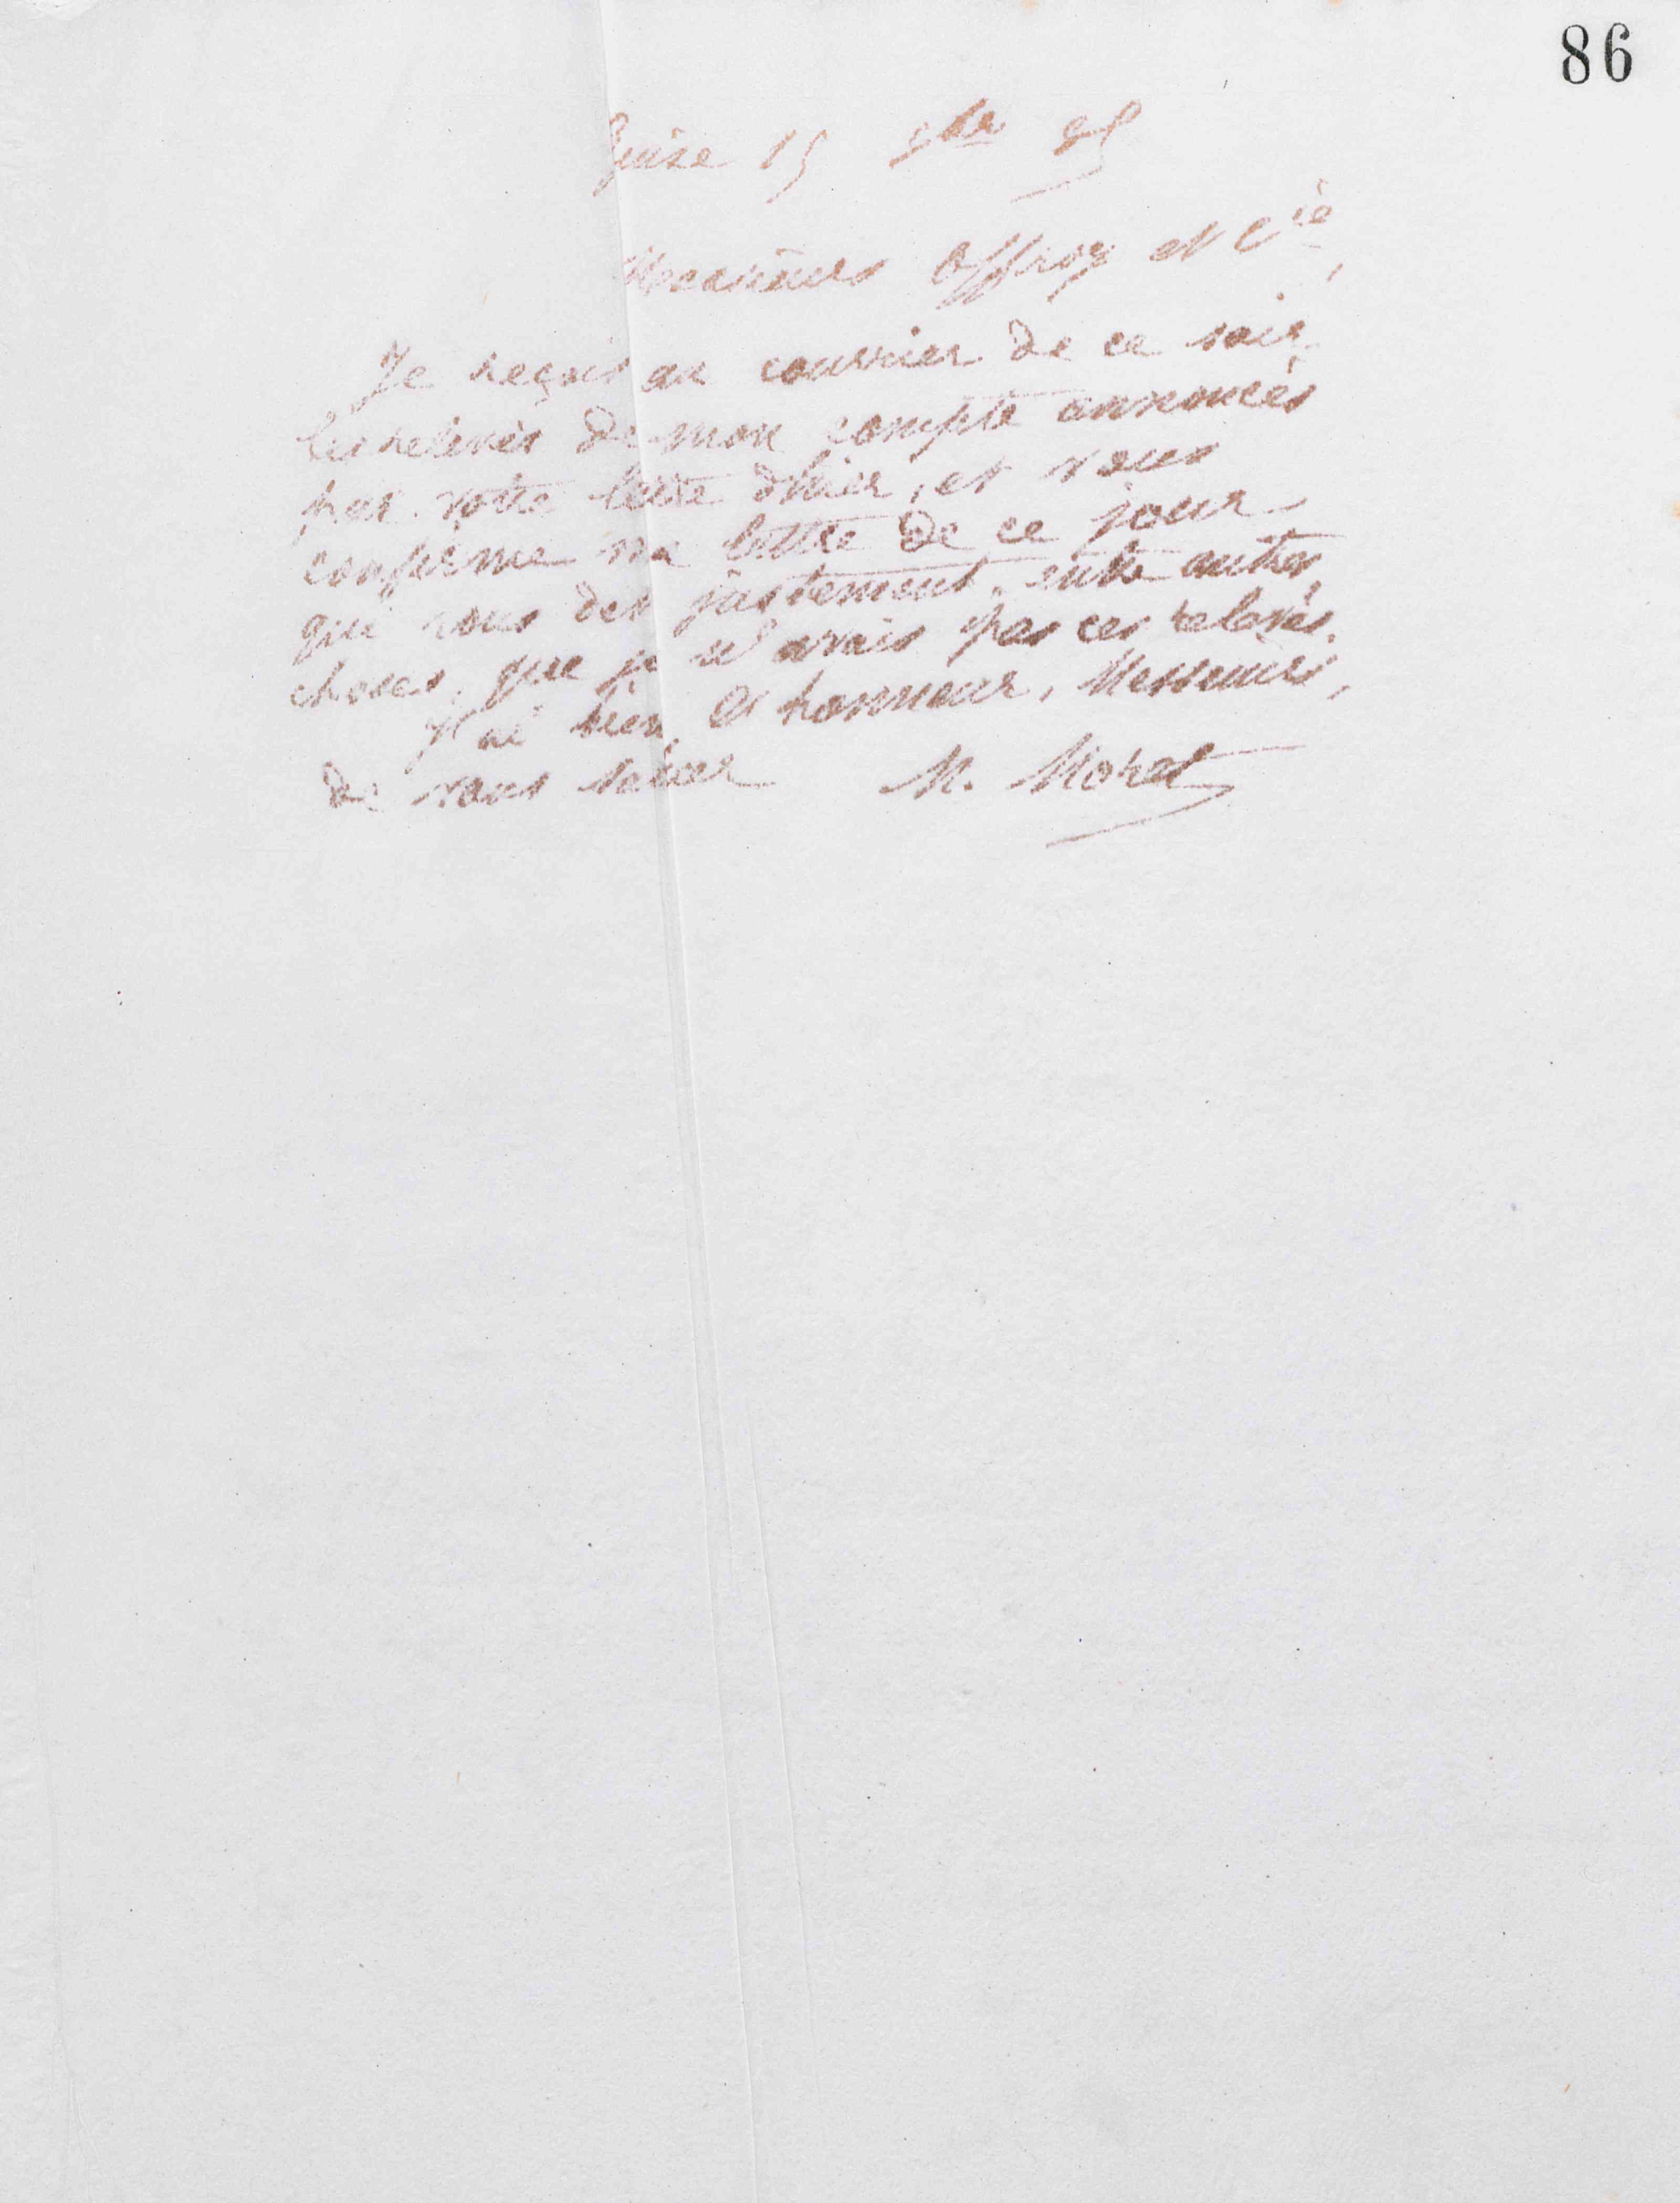 86
Guise 15 9bre 85
Messieurs Offroy et Cie,
Je reçois au courrier de ce soir
les relevés de mon compte annoncés
par votre lettre d'hier, et vous
confirme ma lettre de ce jour
qui vous dit justement, entre autres
choses, que je n'avais pas ces relevés.
J'ai bien l'honneur, Messieurs,
de vous saluer M. Moret